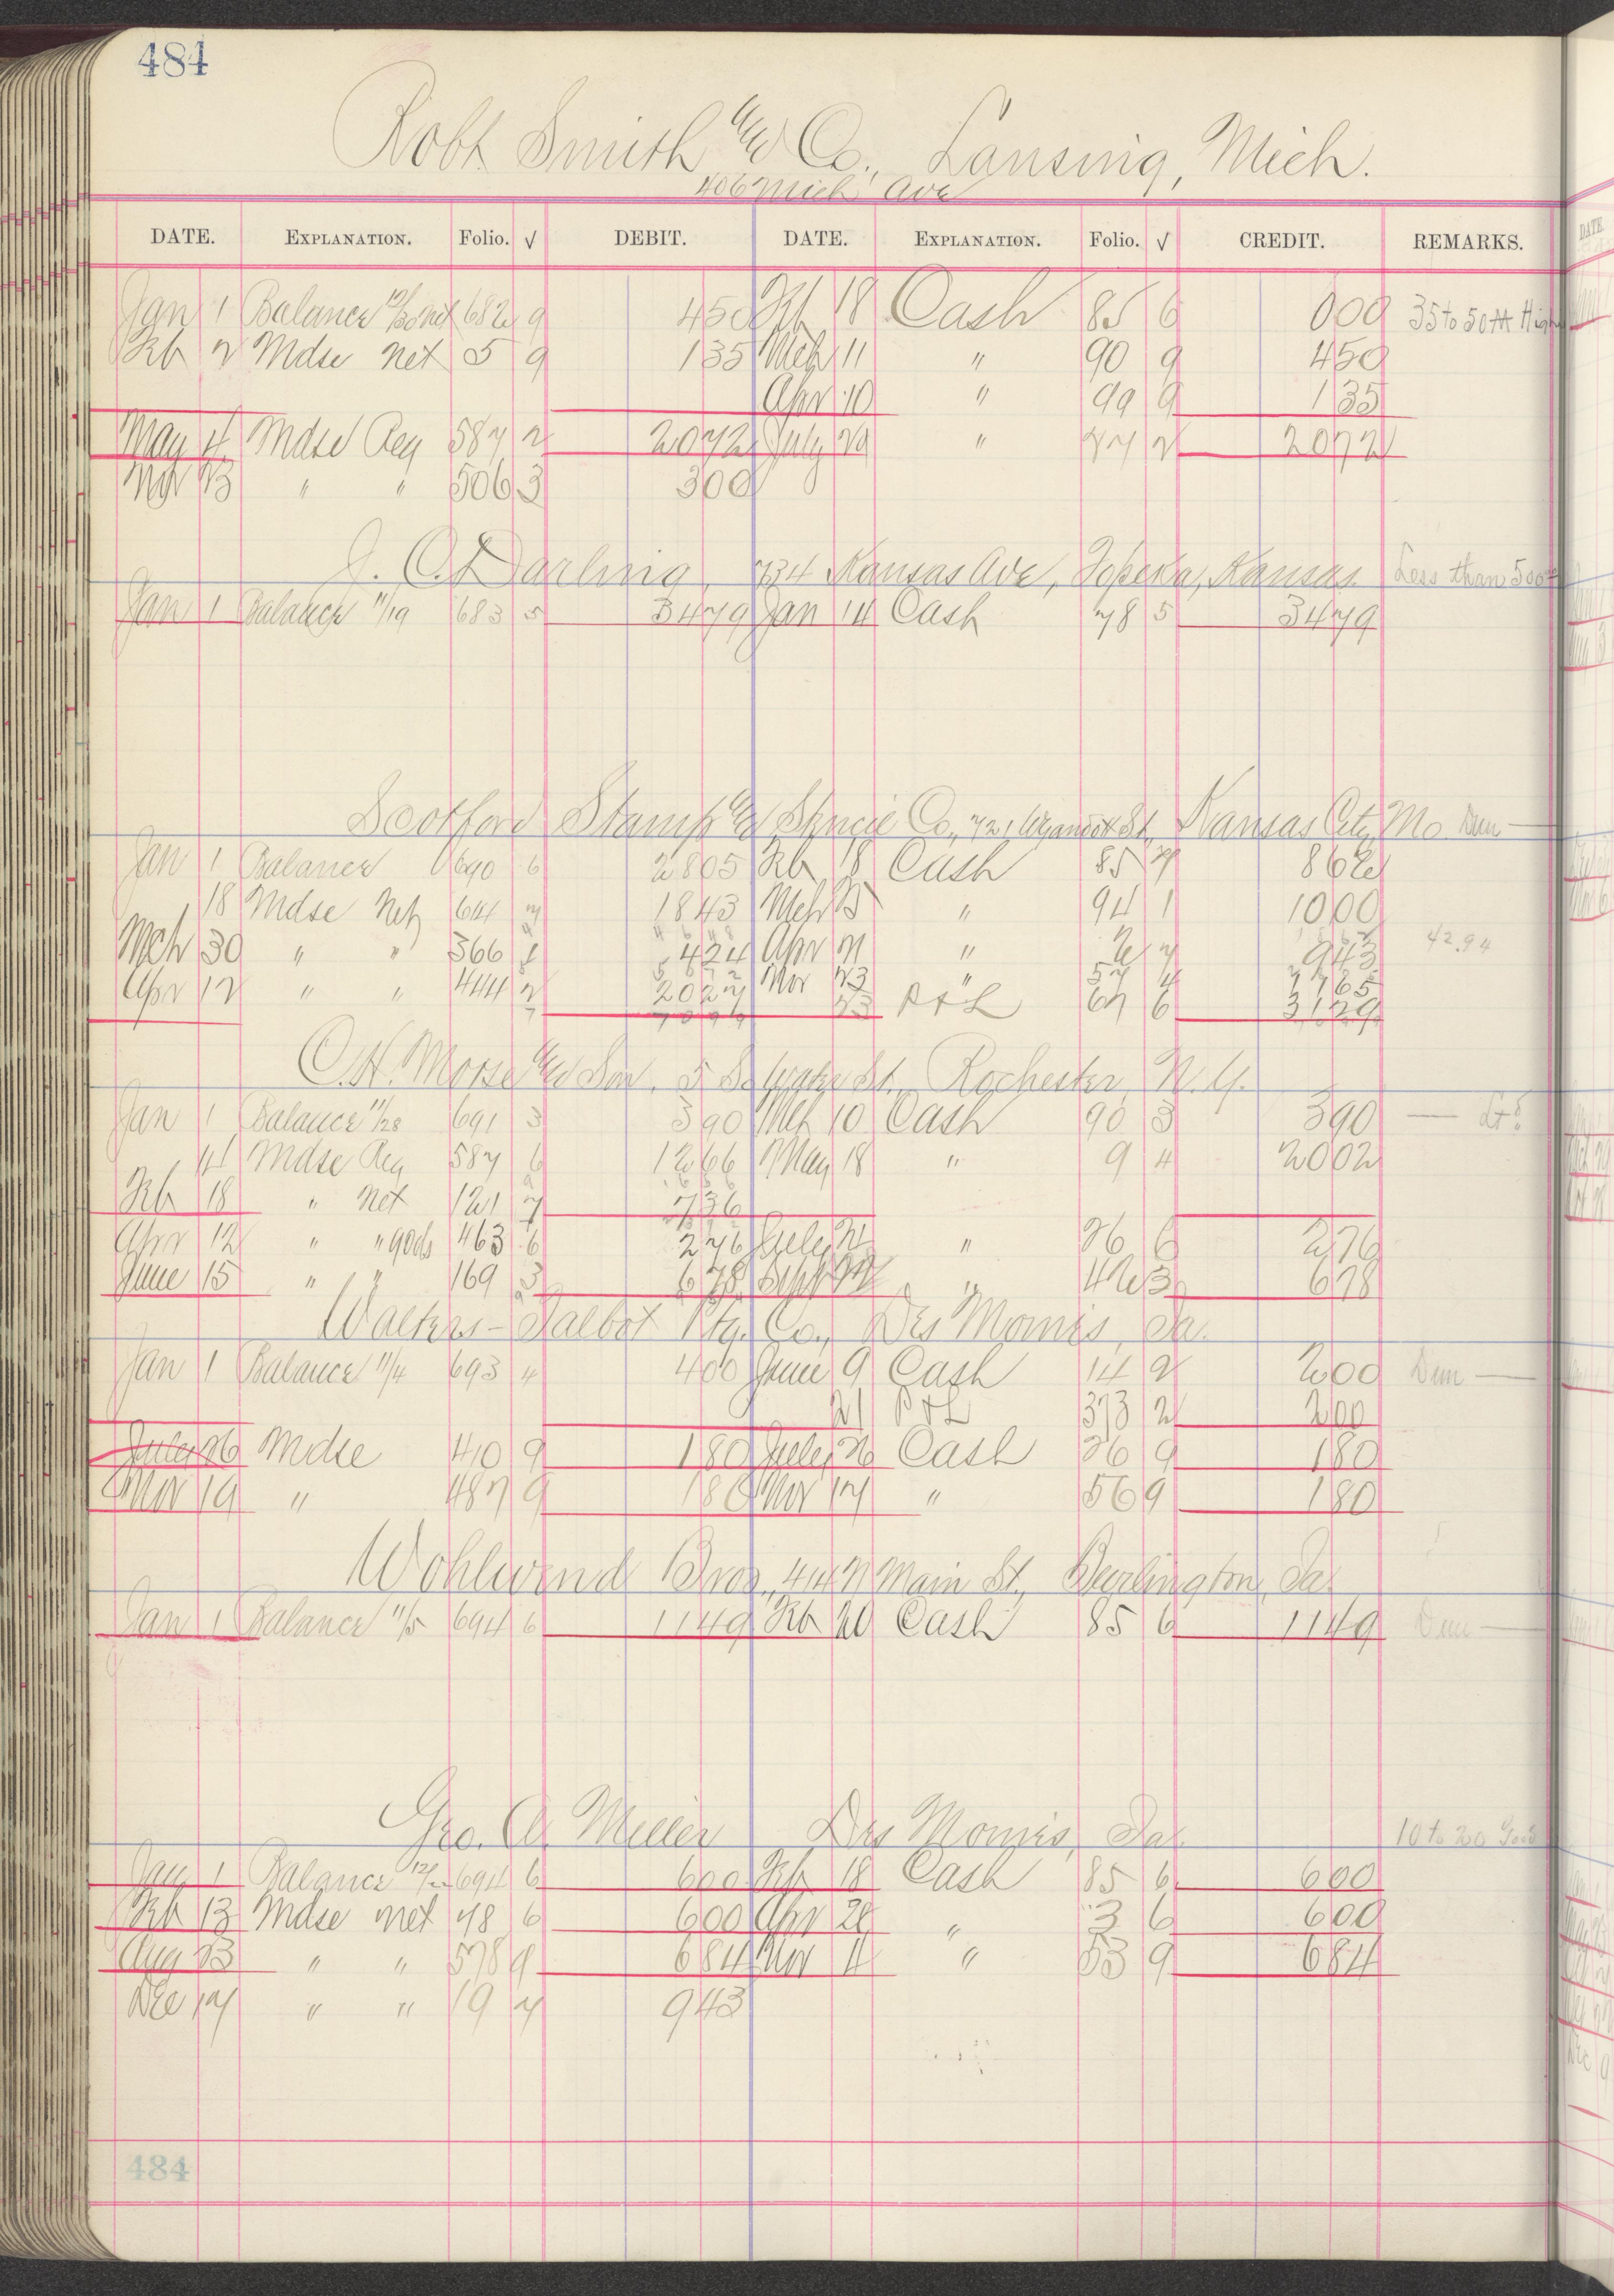 484
Robt Smith & Co., Lansing, Mich.
406 Mich Ave
DATE. EXPLANATION. Folio. √ DEBIT. DATE. EXPLANATION. Folio. √ CREDIT. REMARKS.
Jan 1 Balance 682 9 450 Feb 18 Cash 85 6 000 35 to 50 High
Feb 2 Mdse net 5 9 135 Mch 11 " 90 9 450
Apr 10 " 99 9 135
May 4 Mdse Reg 587 2 2072 July 29 " 27 2 2072
Nov 23 " " 506 3 300
J. C. Darling, 734 Kansas Ave, Topeka, Kansas Less than 500
Jan 1 Balance 11/19 683 5 3479 Jan 14 Cash 78 5 3479
Scotford Stamp & Stencil Co., 721 Wyandot St, Kansas City, Mo Dun —
Jan 1 Balance 690 6 2805 Feb 18 Cash 85 7 862
18 Mdse Net 644 7 1843 Mch 25 " 94 1 1000
Mch 30 " " 366 1 424 Apr 21 " 2 7 943 42.94
Apr 12 " " 444 2 2027 Nov 23 " 57 4 1165
23 P & L 67 6 3129
7099
C. H. Morse & Son, 5 So Water St., Rochester, N. Y.
Jan 1 Balance 11/28 691 3 390 Mch 10 Cash 90 3 390
4 Mdse Reg 587 6 1266 May 18 " 9 4 2002
Feb 18 " Net 121 7 736
Apr 12 " " 463 6 276 July 21 " 26 6 276
June 15 " " 169 3 678 Sept 22 " 42 3 678
Walters-Talbot Ptg. Co., Des Moines, Ia.
Jan 1 Balance 11/4 693 4 400 June 9 Cash 14 2 200 Dun —
21 P & L 373 2 200
July 26 Mdse 410 9 180 July 26 Cash 26 9 180
Nov 19 " 487 9 180 Nov 17 " 56 9 180
Wohlwend Bros., 414 N Main St, Burlington, Ia.
Jan 1 Balance 11/5 694 6 1149 Feb 20 Cash 85 6 1149 Dun —
Geo. A. Miller Des Moines, Ia.
10 to 20 Good
Jan 1 Balance 694 6 600 Feb 18 Cash 85 6 600
Feb 13 Mdse net 78 6 600 Apr 28 " 3 6 600
Aug 23 " " 578 9 684 Nov 4 " 53 9 684
Dec 17 " " 19 7 943
484